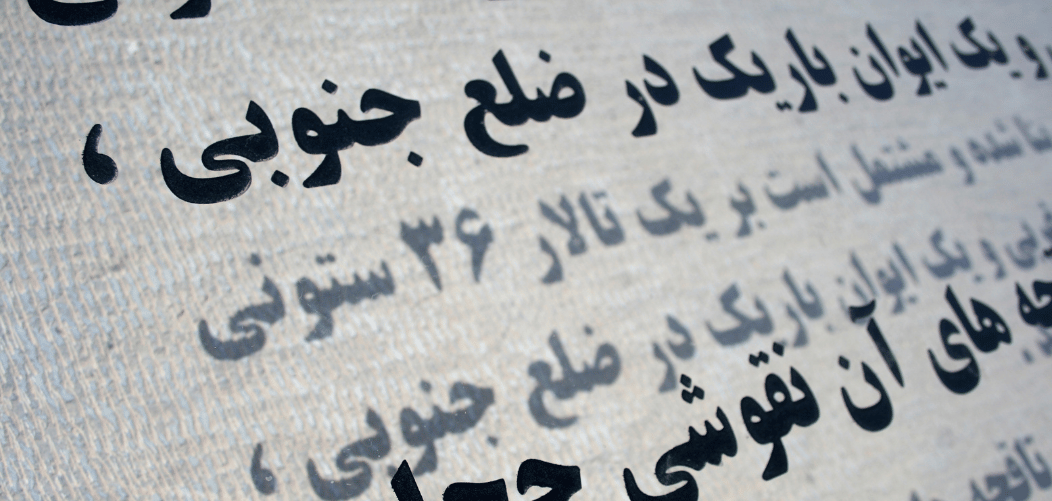 و یک ایوان باریک در ضلع جنوبی ،
شده و مشتمل است بر یک تالار ۳۶ ستونی
و یک ایوان باریک در ضلع جنوبی ،
های آن نقوشی